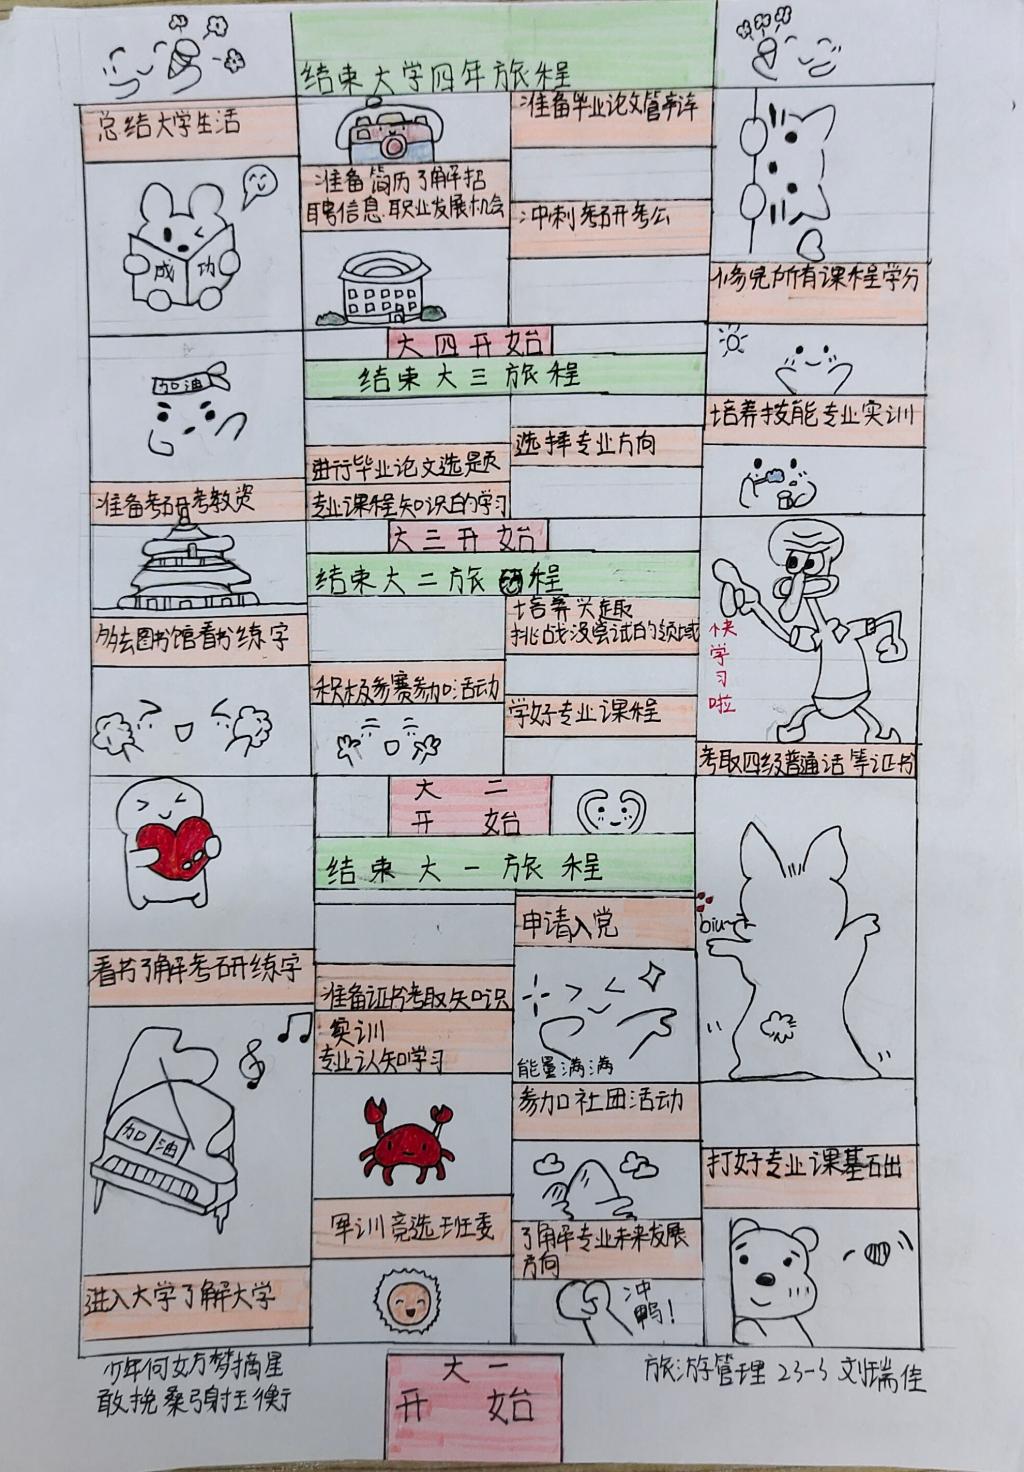 结束大学四年旅程
总结大学生活
准备毕业论文答辩
准备简历了解招
聘信息.职业发展机会
冲刺考研考公
成功
修完所有课程学分
大四开始
结束大三旅程
加油
培养技能专业实训
选择专业方向
进行毕业论文选题
准备考研考教资
专业课程知识的学习
大三开始
结束大二旅程
培养兴趣
挑战没尝试的领域
多去图书馆看书练字
快学习啦
积极参赛参加活动
学好专业课程
考取四级普通话等证书
大二
开始
结束大一旅程
申请入党
biu~
看书了解考研练字
准备证书考取知识
实训
专业认知学习
能量满满
参加社团活动
加油
打好专业课基础
军训竞选班委
了解专业未来发展
方向
进入大学了解大学
冲
鸭!
少年何妨梦摘星
敢挽桑弓射玉衡
大一
开始
旅游管理23-3 刘瑞佳